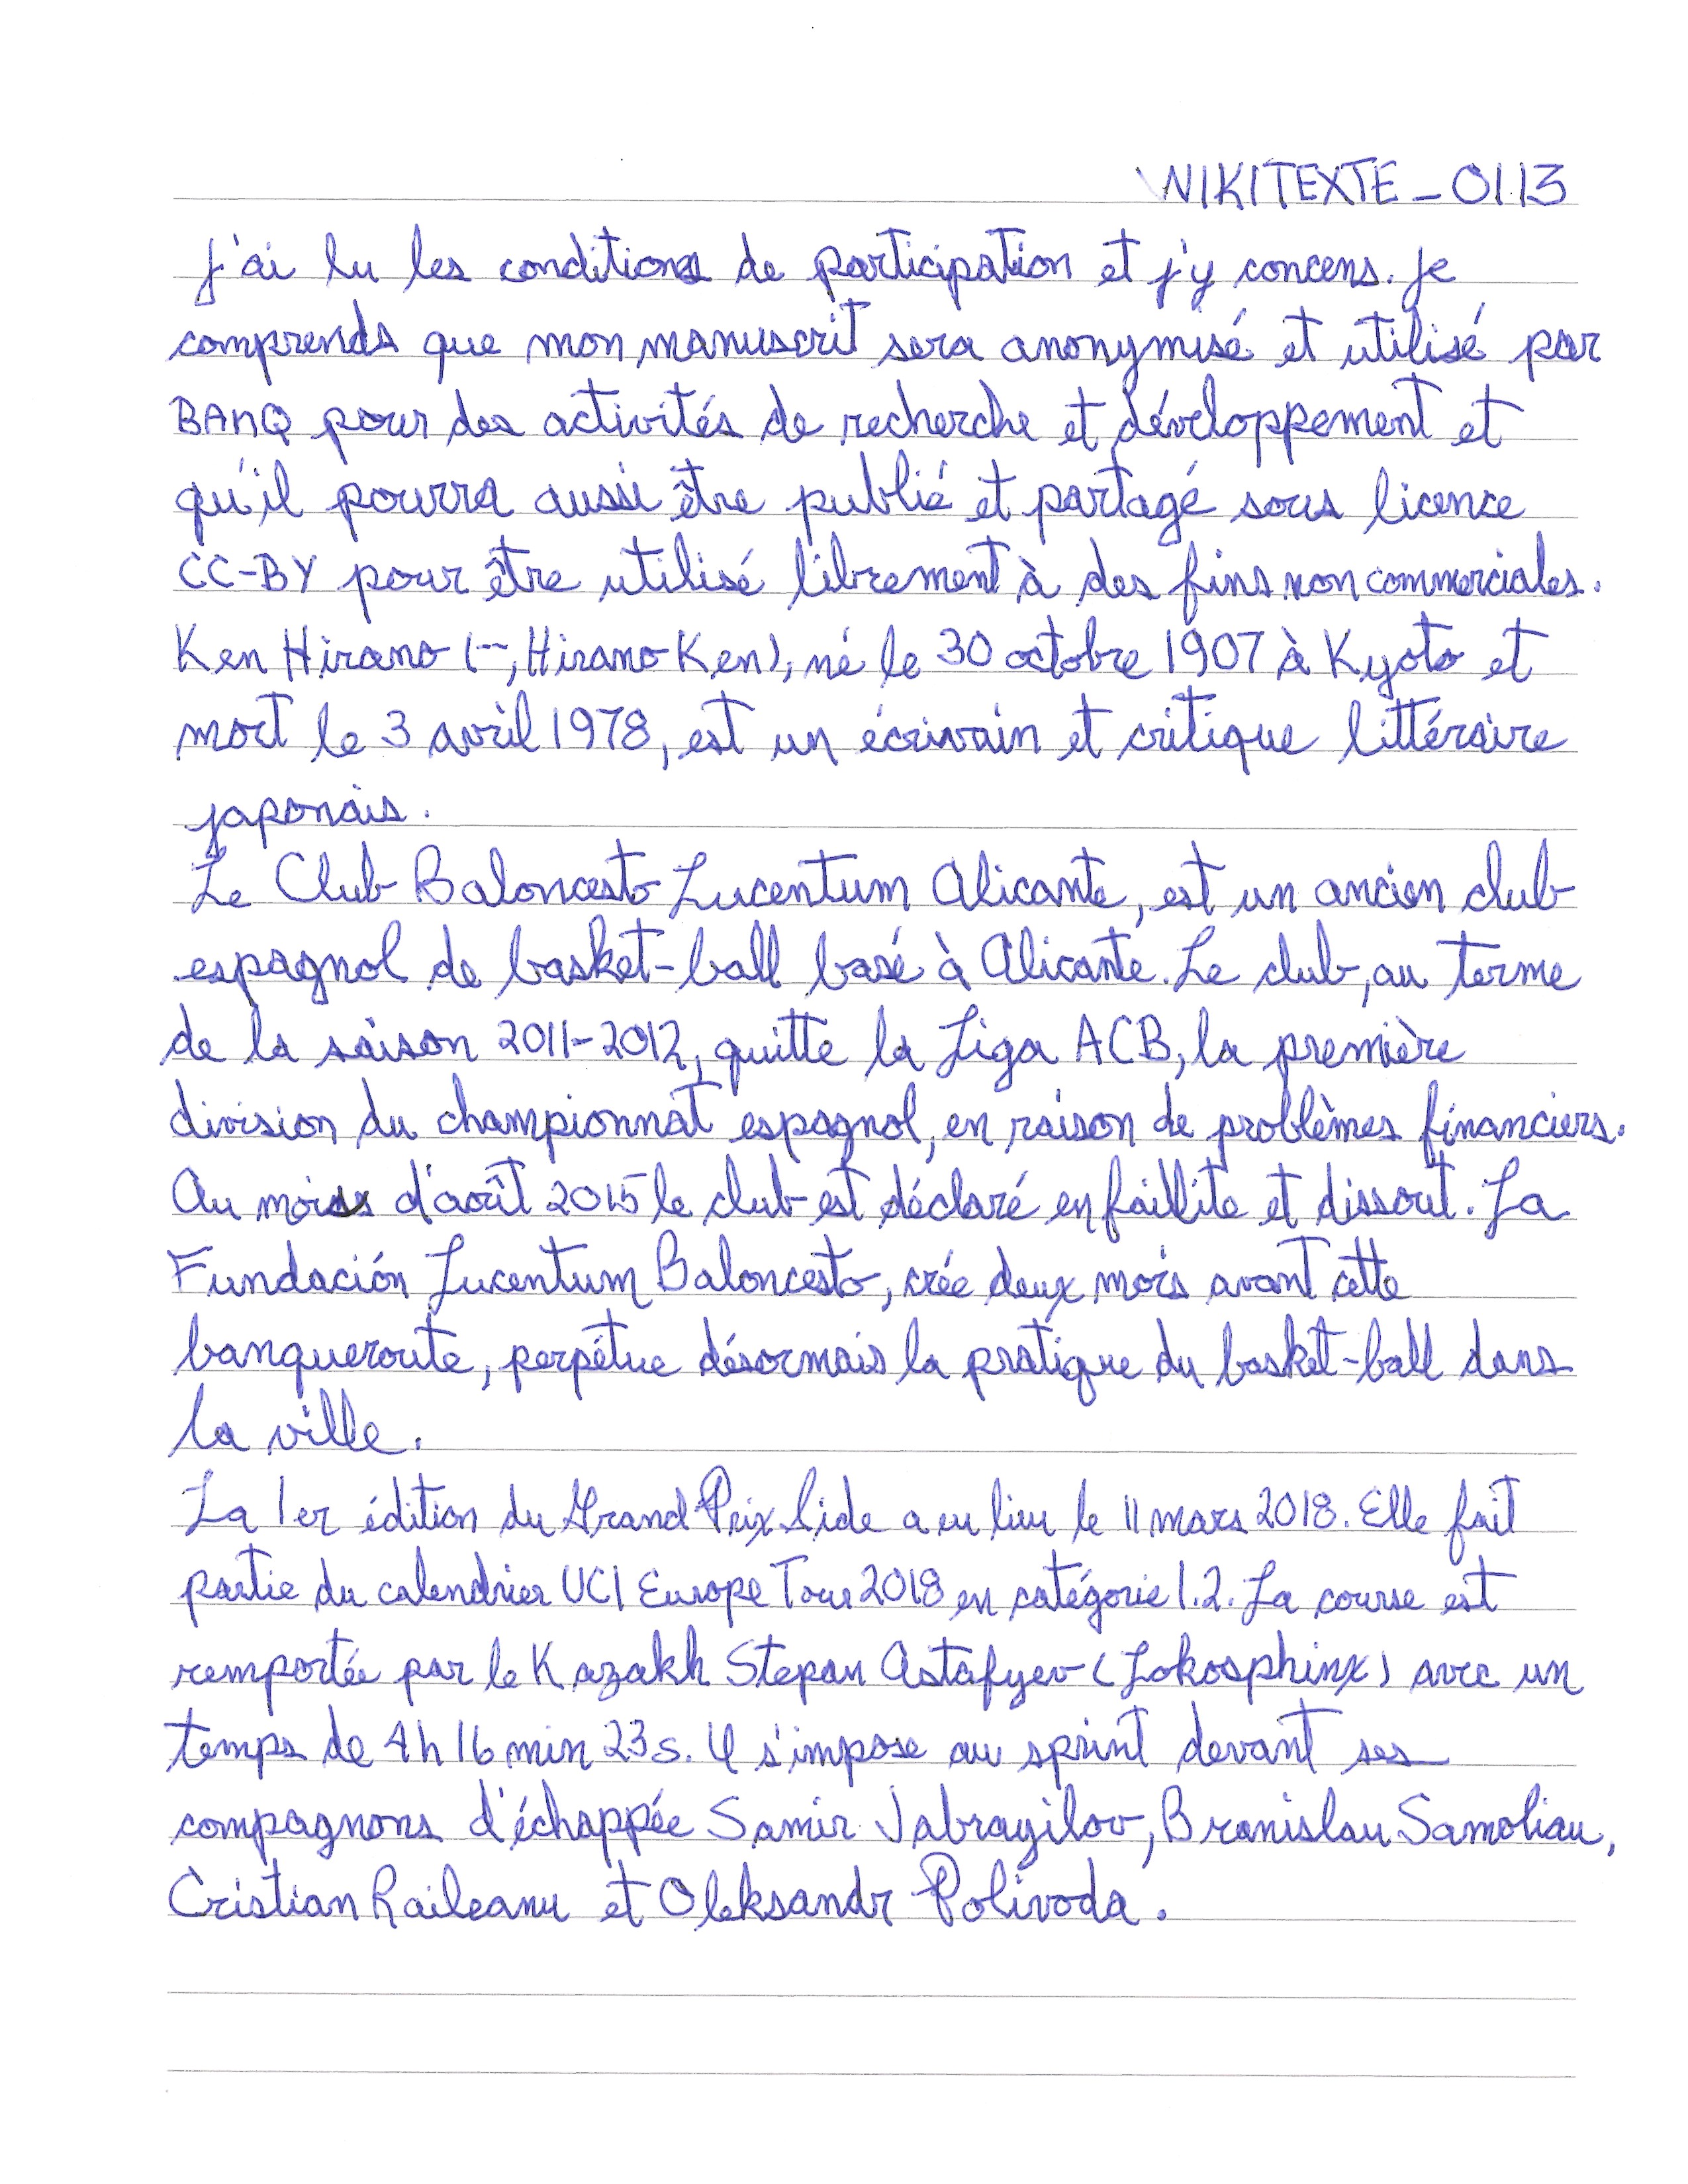 WIKITEXTE_0113
J'ai lu les conditions de participation et j'y concens. Je
comprends que mon manuscrit sera anonymisé et utilisé par
BANQ pour des activités de recherche et développement et
qu'il pourra aussi être publié et partagé sous licence
CC-BY pour être utilisé librement à des fins non commerciales.
Ken Hirano (--, Hirano Ken), né le 30 octobre 1907 à Kyoto et
mort le 3 avril 1978, est un écrivain et critique littéraire
japonais.
Le Club Baloncesto Lucentum Alicante, est un ancien club
espagnol de basket-ball basé à Alicante. Le club, au terme
de la saison 2011-2012, quitte la Liga ACB, la première
division du championnat espagnol, en raison de problèmes financiers.
Au mois d'août 2015 le club est déclaré en faillite et dissout. La
Fundación Lucentum Baloncesto, crée deux mois avant cette
banqueroute, perpétue désormais la pratique du basket-ball dans
la ville.
La 1er édition du Grand Prix Side a eu lieu le 11 mars 2018. Elle fait
partie du calendrier UCI Europe Tour 2018 en catégorie 1.2. La course est
remportée par le Kazakh Stepan Astafyev (Lokosphinx) avec un
temps de 4h 16 min 23s. Il s'impose au sprint devant ses
compagnons d'échappée Samir Jabrayilov, Branislau Samoliau,
Cristian Raileanu et Oleksandr Polivoda.